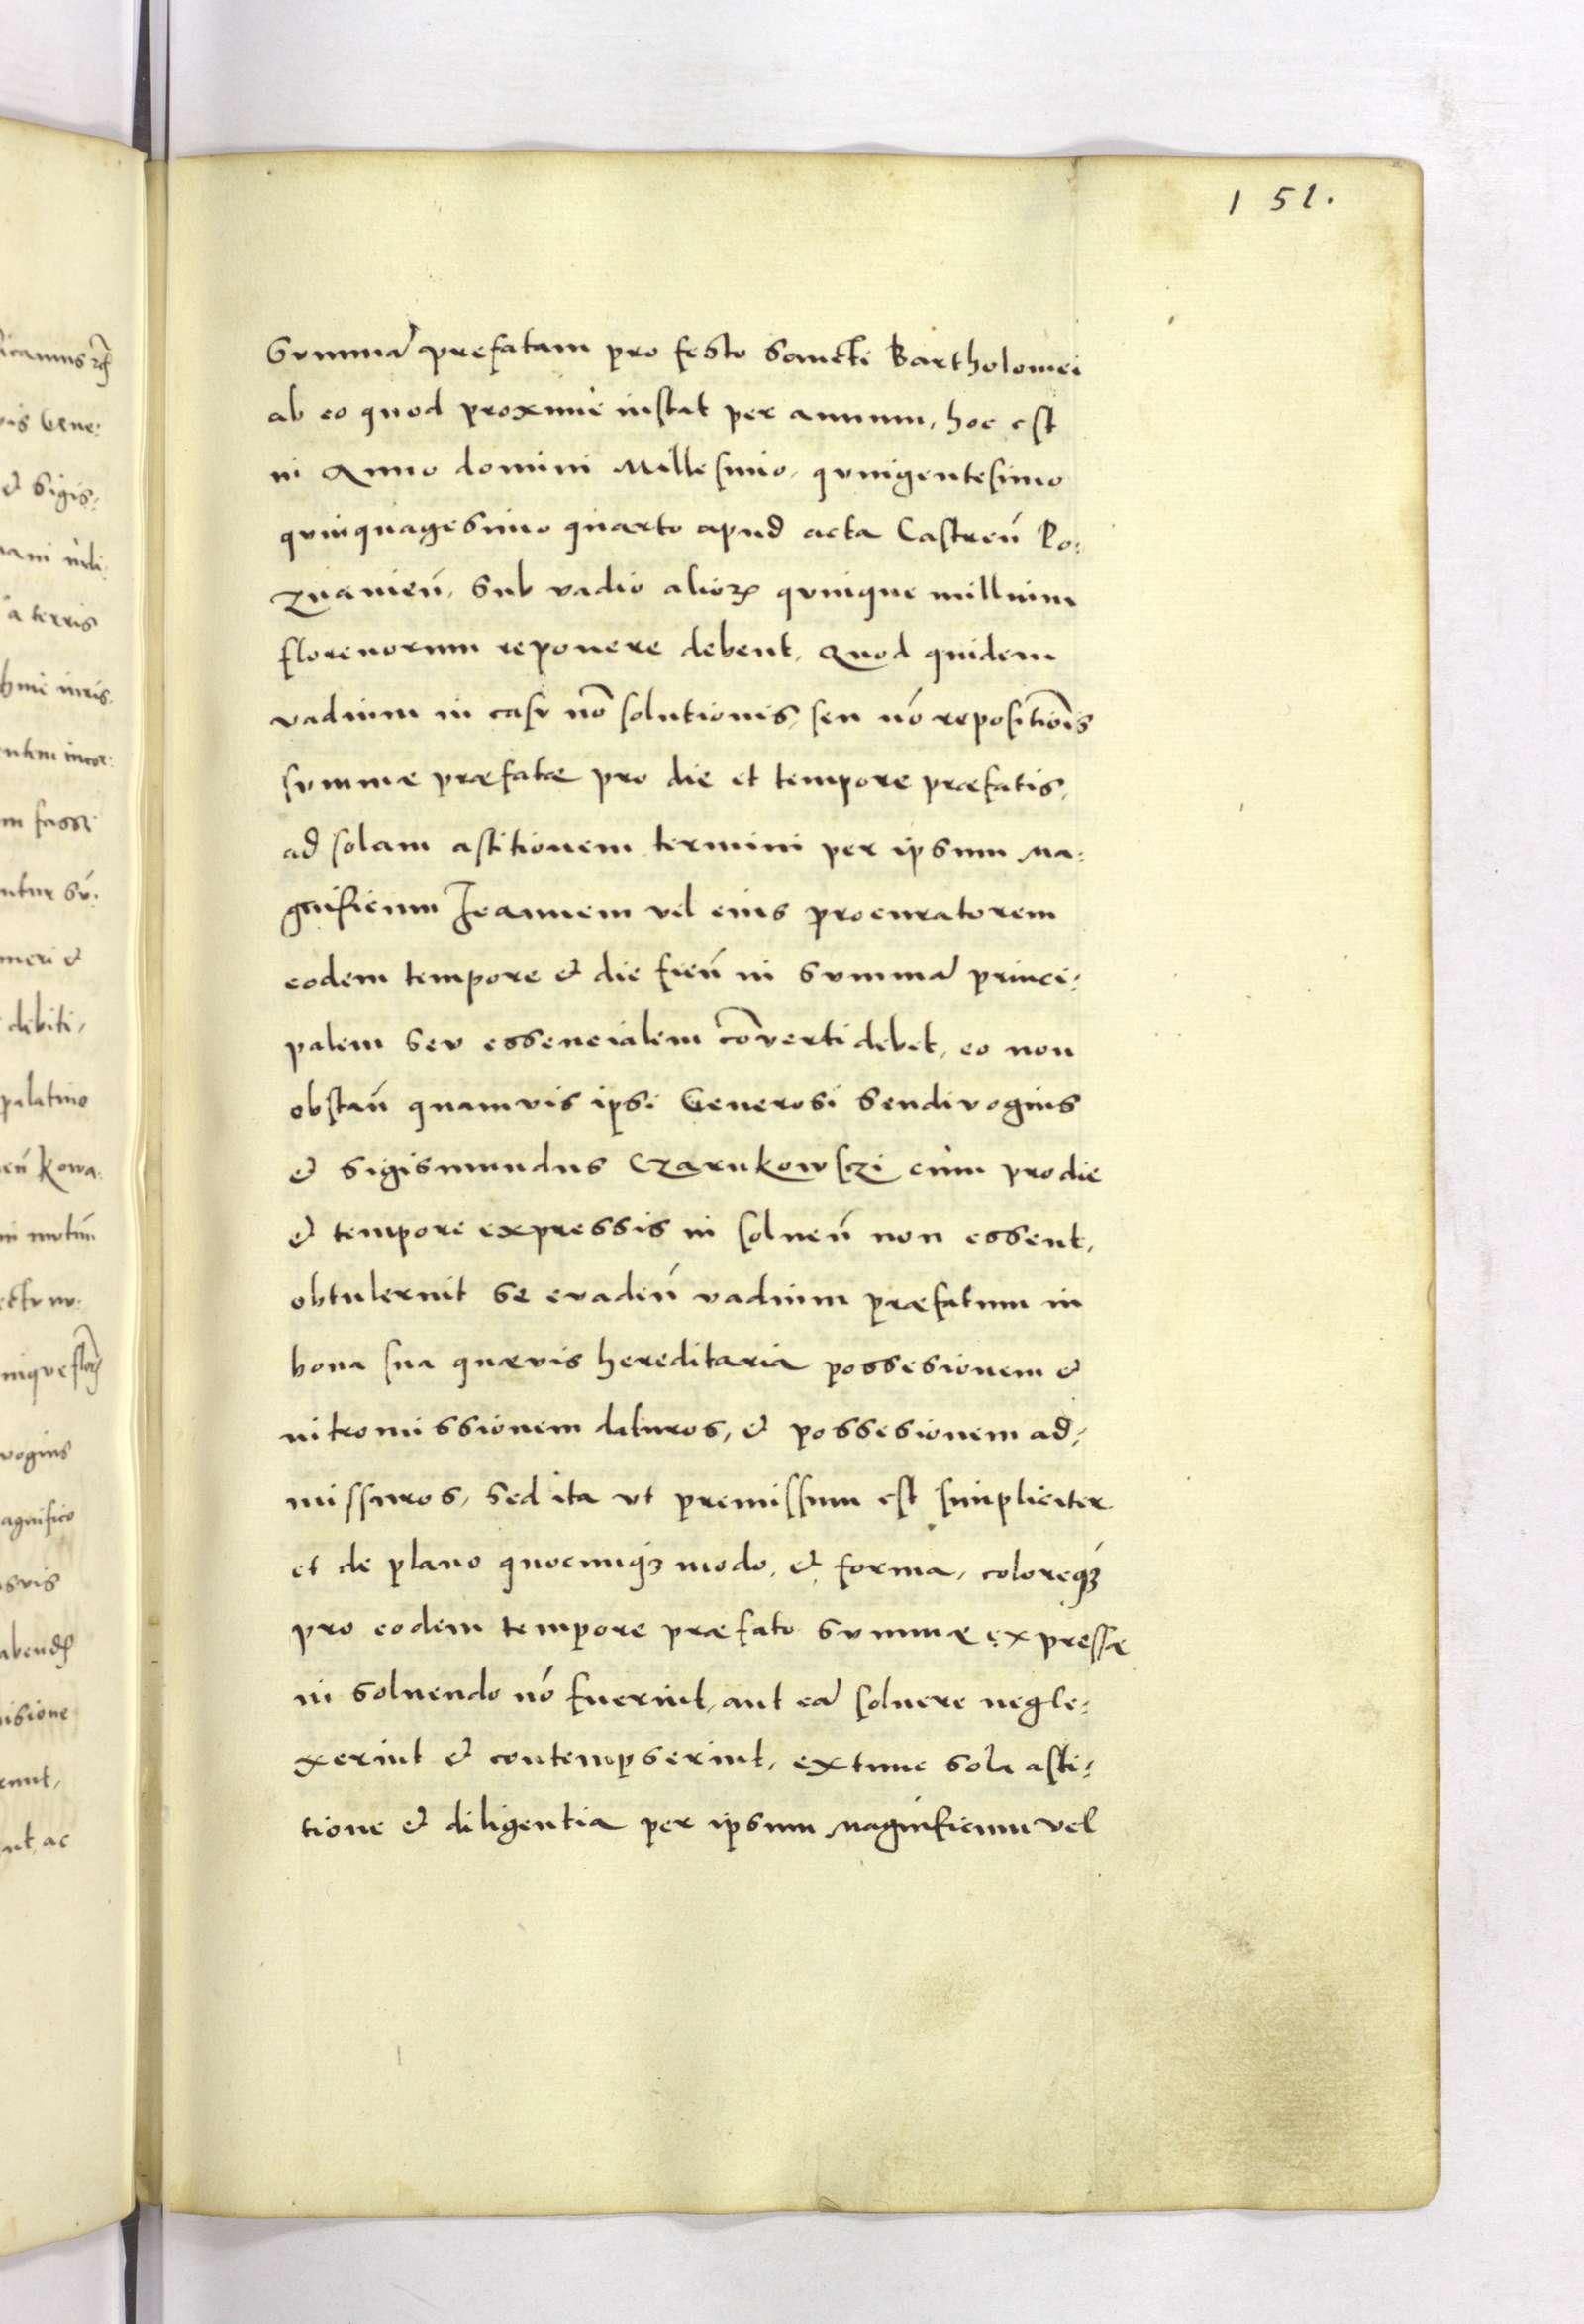 151.
Summã prefatam pro festo Sancti Bartholomei
ab eo quod proxime instat per annum, hoc est
in Anno domini Millesimo, quingentesimo
quinquagesimo quarto apud acta Castreñ Po:
znanieñ, sub vadio alioꝝ quinque millium
florenorum reponere debent, Quod quidem
vadium in casu nõ solutionis, seu nõ repositiõis
summæ præfatæ pro die et tempore præfatis,
ad solam astitionem termini per ipsum Ma:
gnificum Ioannem vel eius procuratorem
eodem tempore & die fieñ in summã princi:
palem seu essencialem cõverti debet, eo non
obstañ quamvis ipsi Generosi Sendivogius
& Sigismundus Czarnkowsczi cum pro die
& tempore expressis in solueñ non essent,
obtulerint se evadeñ vadium præfatum in
bona sua quævis hereditaria possesionem &
intromissionem daturos, & possesionem ad:
missuros, sed ita ut premissum est simpliciter
et de plano quocunqꝫ modo, & forma, coloreqꝫ
pro eodem tempore præfato summæ expressæ
in soluendo nõ fuerint, aut eã soluere negle:
xerint & contempserint, extunc sola asti:
tione & diligentia per ipsum Magnificum vel